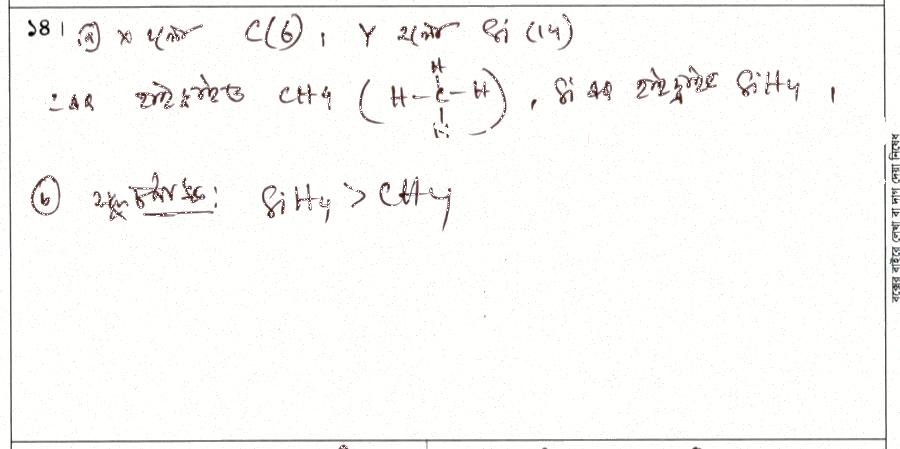 ১৪। (a) X হলো C(6), Y হলো Si (14)
C এর হাইড্রাইড CH4 ( H-C-H ), Si এর হাইড্রাইড SiH4,
H
H
(b) স্ফুটনাঙ্ক: SiH4 > CH4
বক্সের বাইরে লেখা বা দাগ দেয়া নিষেধ